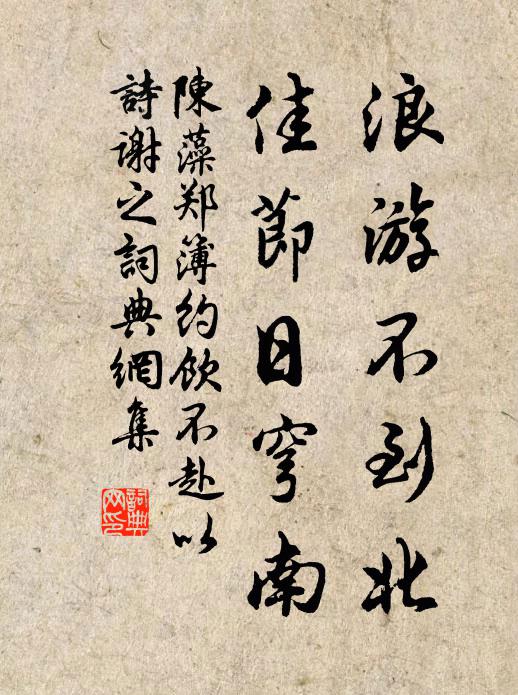 浪游不到北
佳節日穹南
陳藻郑簿约飲不赴以
詩谢之詞典網集
詞典网印